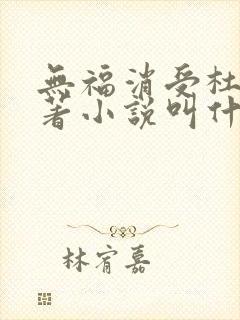 無福消受杜
著小説叫什
林宥嘉